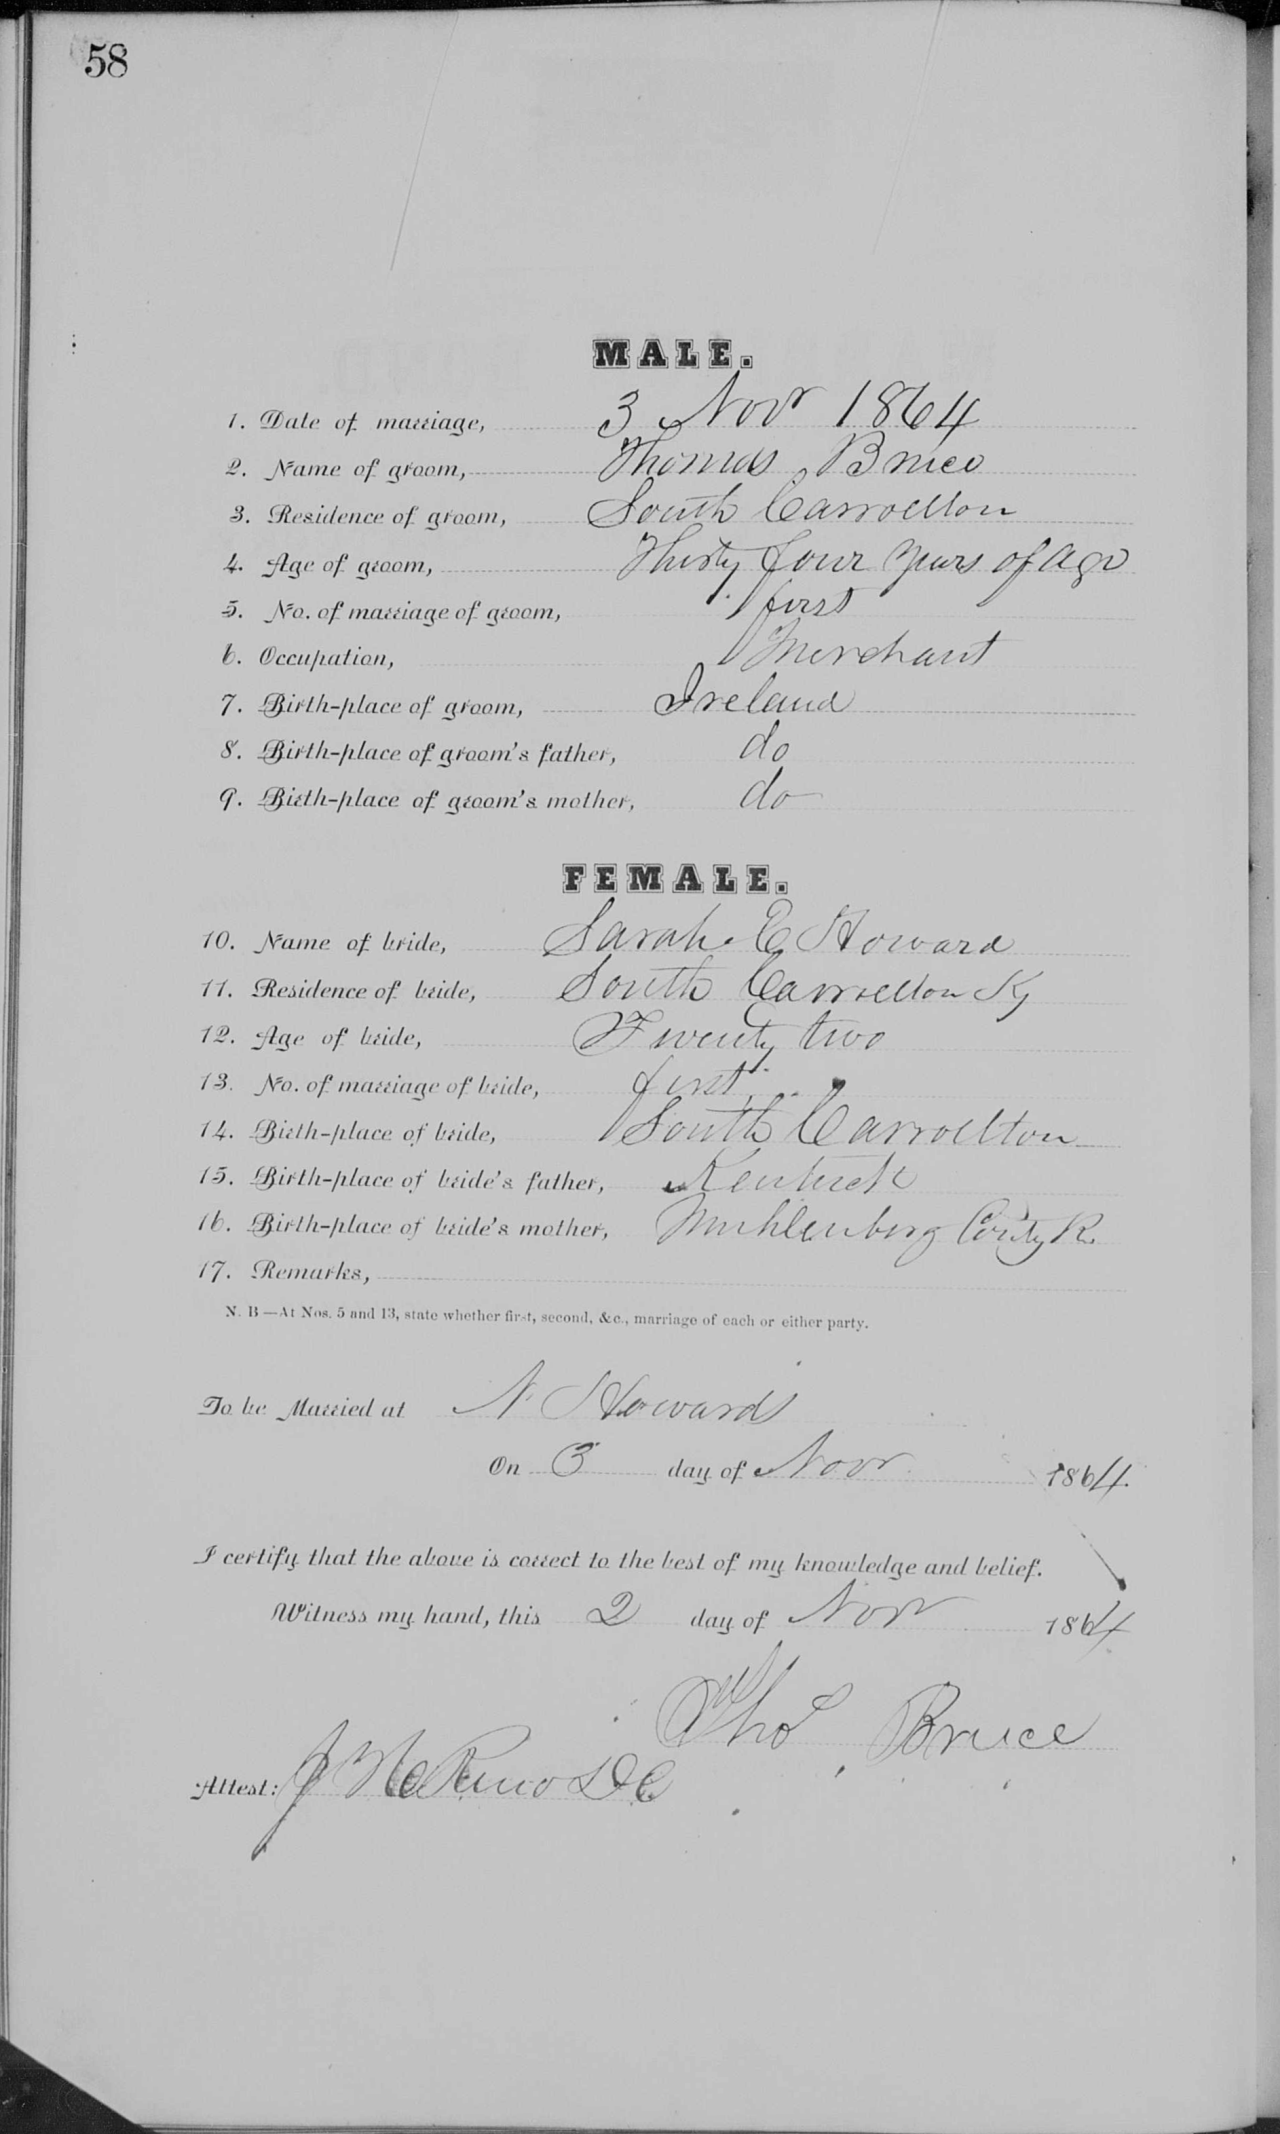 58
MALE.
1. Date of marriage, 3 Novr 1864
2. Name of groom, Thomas Bruce
3. Residence of groom, South Carrollton
4. Age of groom, Thirty four years of age
5. No. of marriage of groom, first
6. Occupation, Merchant
7. Birth-place of groom, Ireland
8. Birth-place of groom's father, do
9. Birth-place of groom's mother, do
FEMALE.
10. Name of bride, Sarah E Howard
11. Residence of bride, South Carrollton Ky
12. Age of bride, Twenty two
13. No. of marriage of bride, first
14. Birth-place of bride, South Carrollton
15. Birth-place of bride's father, Kentuck
16. Birth-place of bride's mother, Muhlenberg County K.
17. Remarks,
N. B—At Nos. 5 and 13, state whether first, second, &c., marriage of each or either party.
To be Married at N. Howards
On 3 day of Novr 1864.
I certify that the above is correct to the best of my knowledge and belief.
Witness my hand, this 2 day of Novr 1864
Thos Bruce
Attest: J DC